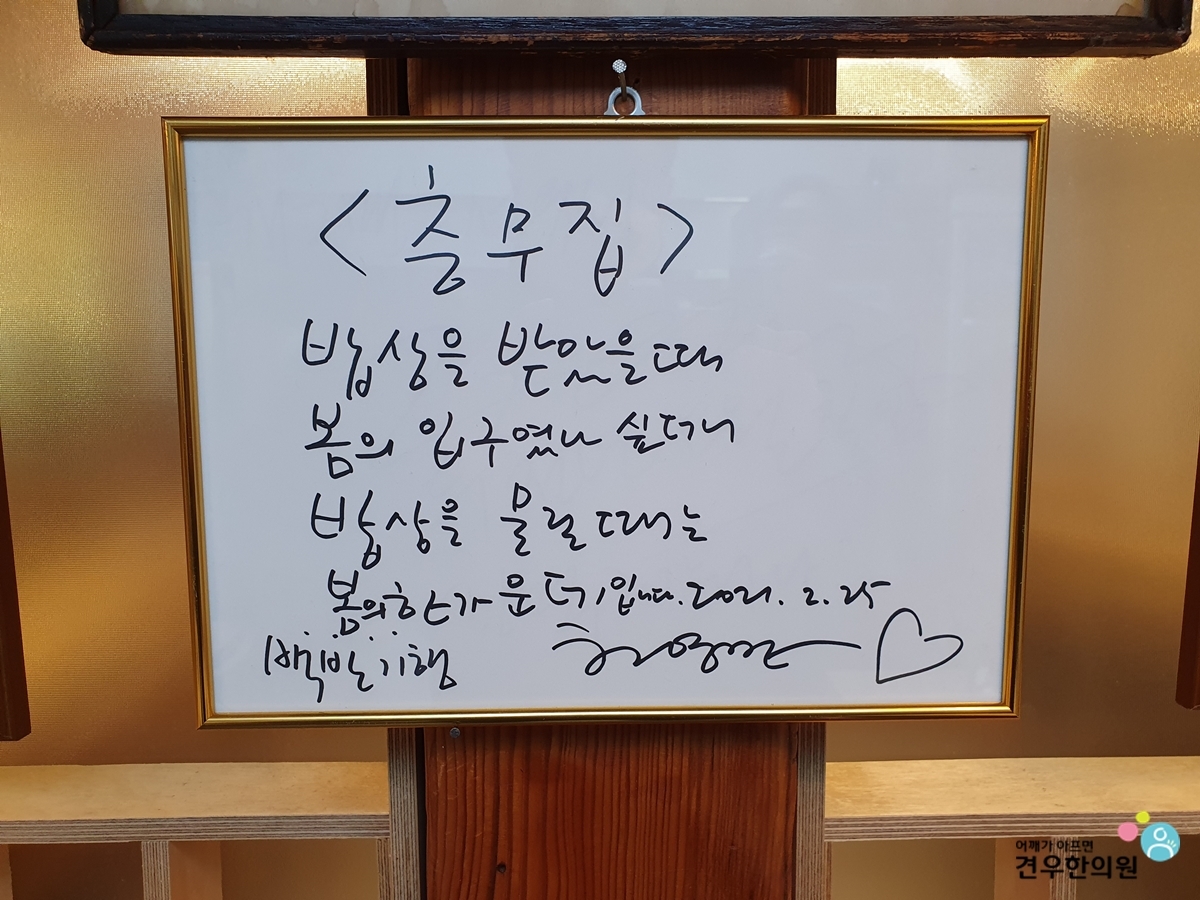 <충무집>
밥상을 받았을때
봄의 입구였나 싶더니
밥상을 물릴때는
봄의한가운데입니다. 2021. 2. 25
백반기행 허영만
어깨가 아프면
견우한의원